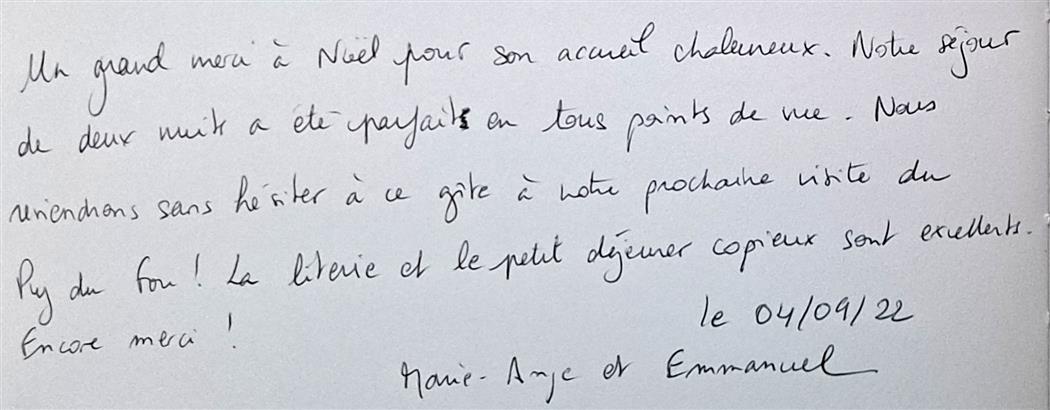 Un grand merci à Noël pour son accueil chaleureux. Notre séjour
de deux nuits a été parfait en tous points de vue. Nous
reviendrons sans hésiter à ce gîte à notre prochaine visite du
Puy du Fou ! La literie et le petit déjeuner copieux sont excellents.
Encore merci !
le 04/09/22
Marie-Ange et Emmanuel